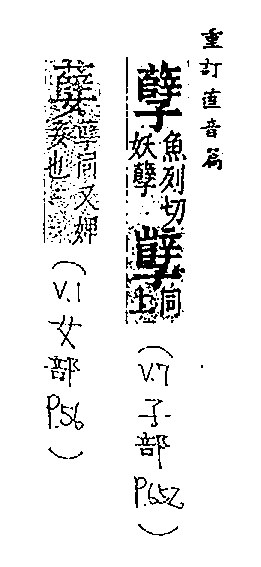 重訂直音篇
孽魚列切妖孽孼同上(V.7子部P.652)
㜸孽同又婢妾也(V.1女部P.56)